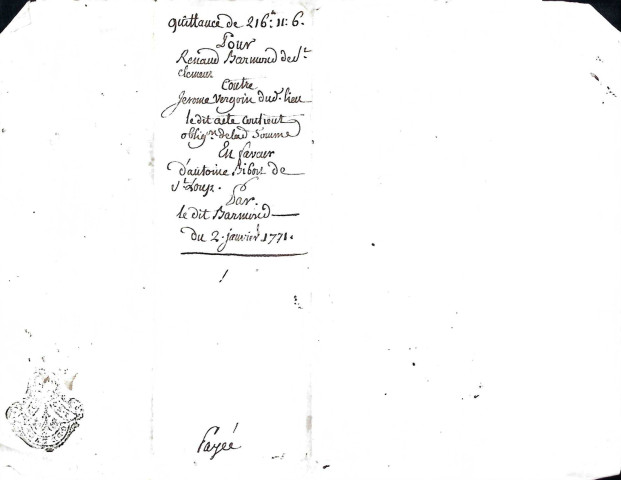 quittance de 216.# 11.s 6.
Pour
Renaud Barmond de St.
Clement
Contre
Jerome Vergoin dud. lieu
le dit acte contient
oblig.on de lad. somme
En faveur
d'antoine Bibois de
St. Loup.
Par.
le dit Barmond
du 2. janvier 1771.
Payée